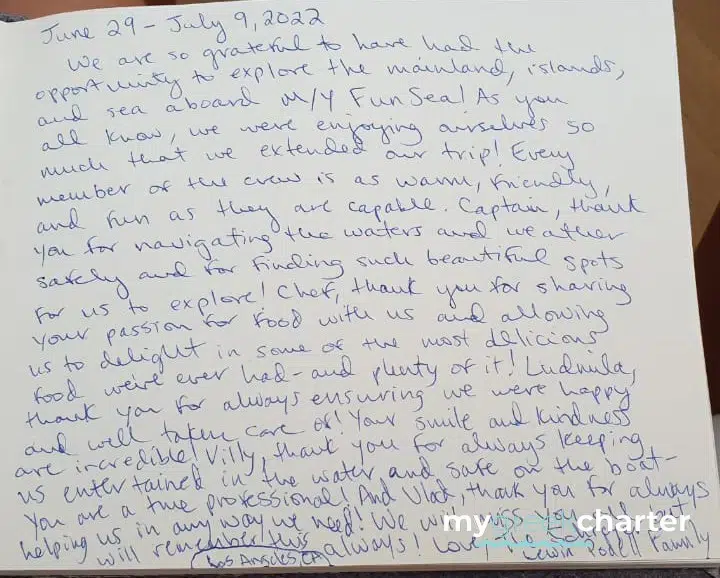 June 29 - July 9, 2022
We are so grateful to have had the
opportunity to explore the mainland, islands,
and sea aboard M/Y FunSea! As you
all know, we were enjoying ourselves so
much that we extended our trip! Every
member of the crew is as warm, friendly,
and fun as they are capable. Captain, thank
you for navigating the waters and weather
safely and for finding such beautiful spots
for us to explore! Chef, thank you for sharing
your passion for food with us and allowing
us to delight in some of the most delicious
food we've ever had - and plenty of it! Ludmila,
thank you for always ensuring we were happy
and well taken care of! Your smile and kindness
are incredible! Villy, thank you for always keeping
us entertained in the water and safe on the boat -
you are a true professional! And Vlad, thank you for always
helping us in any way we need! We will miss you all but
will remember this always! Love, the
Lewin Podell Family
Los Angeles, CA
mygreekcharter